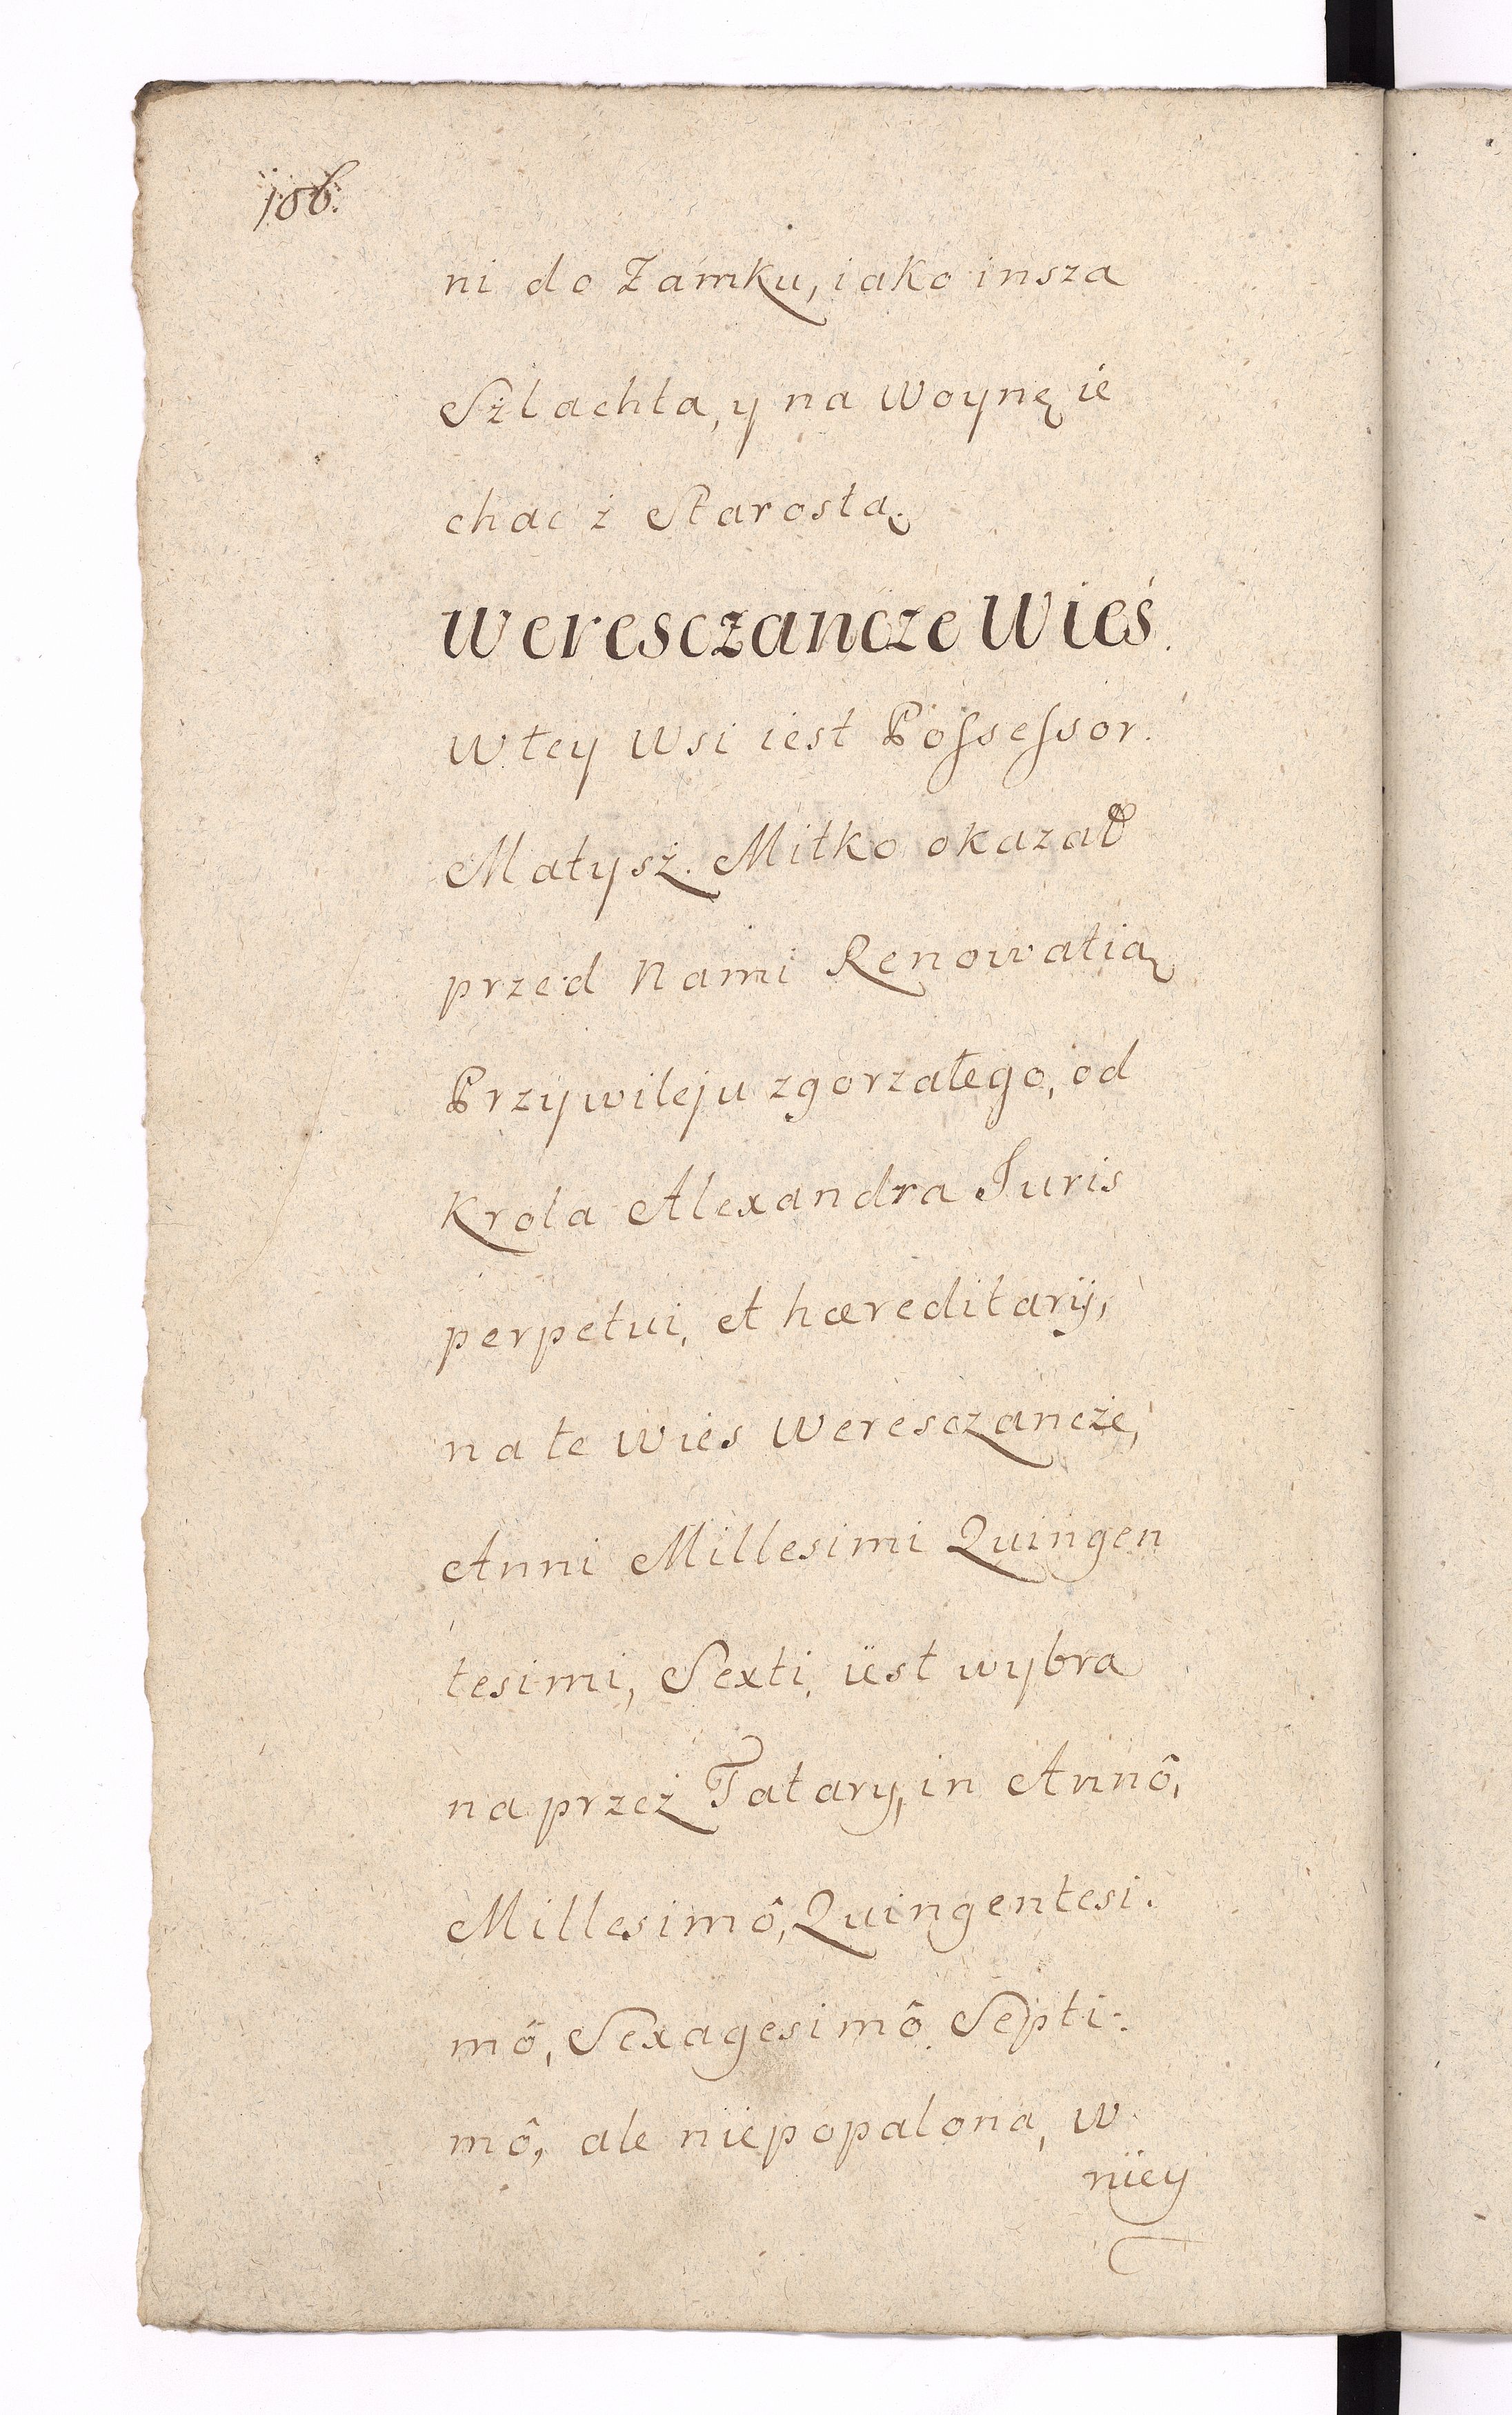 106.
ni do Zamku, iako insza
Szlachta, y na Woynę ie
chac z Starostą.
Weresczancze Wieś.
W tey Wsi iest Possessor.
Matysz. Mitko okazał
przed Nami Renowatią
Przywileju zgorzałego, od
Krola Alexandra Juris
perpetui, et hæreditarij,
na te Wies Weresczancze,
Anni Millesimi Quingen
tesimi, Sexti, iest wybra
na przez Tatary, in Annô,
Millesimô, Quingentesi.
mô, Sexagesimô Septi:
mô, ale niepopalona, w
niey